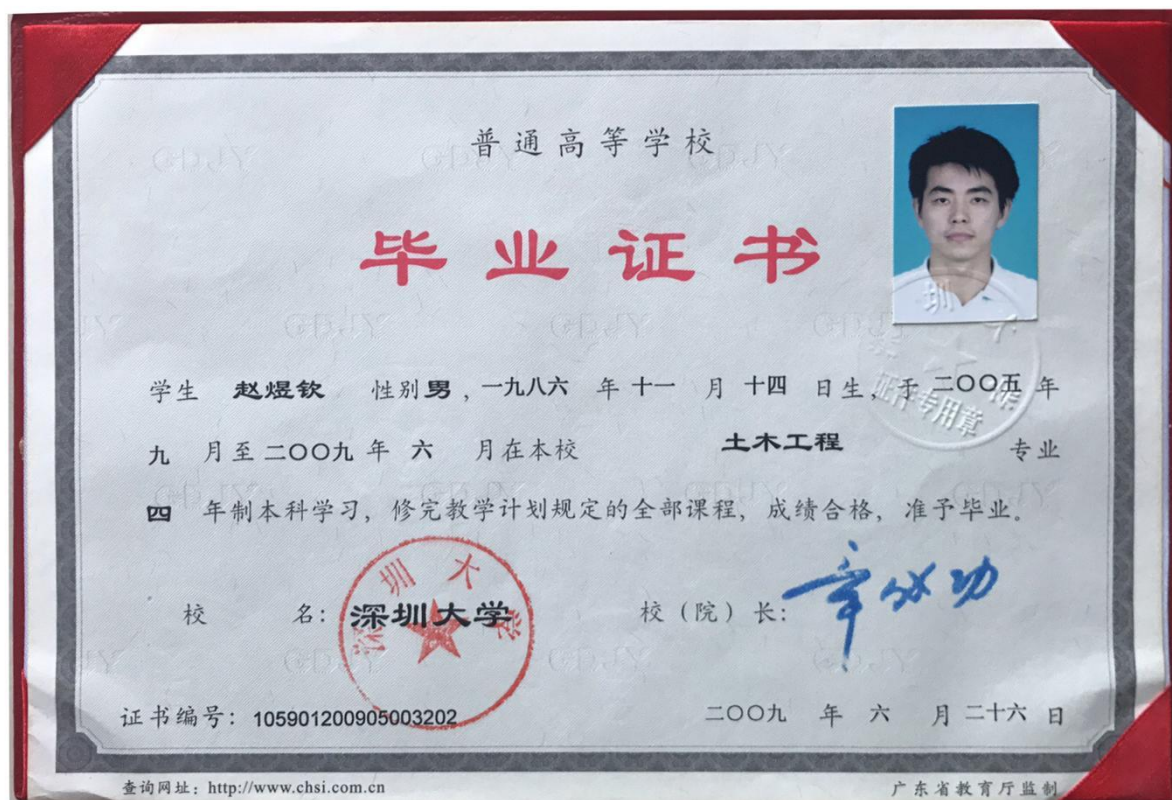 普通高等学校
毕业证书
学生 赵煜钦 性别男，一九八六 年 十一 月 十四 日生，于 二〇〇五 年
九 月至二〇〇九 年 六 月在本校 土木工程 专业
四 年制本科学习，修完教学计划规定的全部课程，成绩合格，准予毕业。
校 名：深圳大学 校（院）长：章必功
深圳大学
圳
证件专用章
证书编号：105901200905003202 二〇〇九 年 六 月 二十六 日
查询网址：http://www.chsi.com.cn 广东省教育厅监制